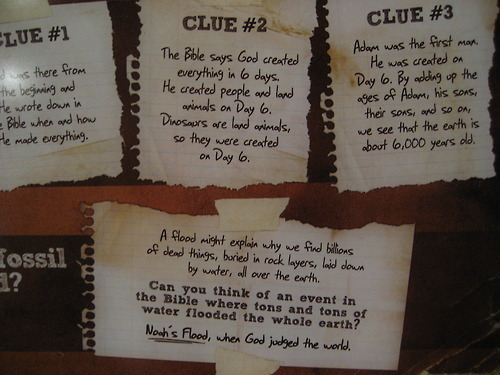 CLUE #1
d was there from
the beginning and
He wrote down in
Bible when and how
He made everything.
CLUE #2
The Bible says God created
everything in 6 days.
He created people and land
animals on Day 6.
Dinosaurs are land animals,
so they were created
on Day 6.
CLUE #3
Adam was the first man.
He was created on
Day 6. By adding up the
ages of Adam, his sons,
their sons, and so on,
we see that the earth is
about 6,000 years old.
fossil
d?
A flood might explain why we find billions
of dead things, buried in rock layers, laid down
by water, all over the earth.
Can you think of an event in
the Bible where tons and tons of
water flooded the whole earth?
Noah's Flood, when God judged the world.